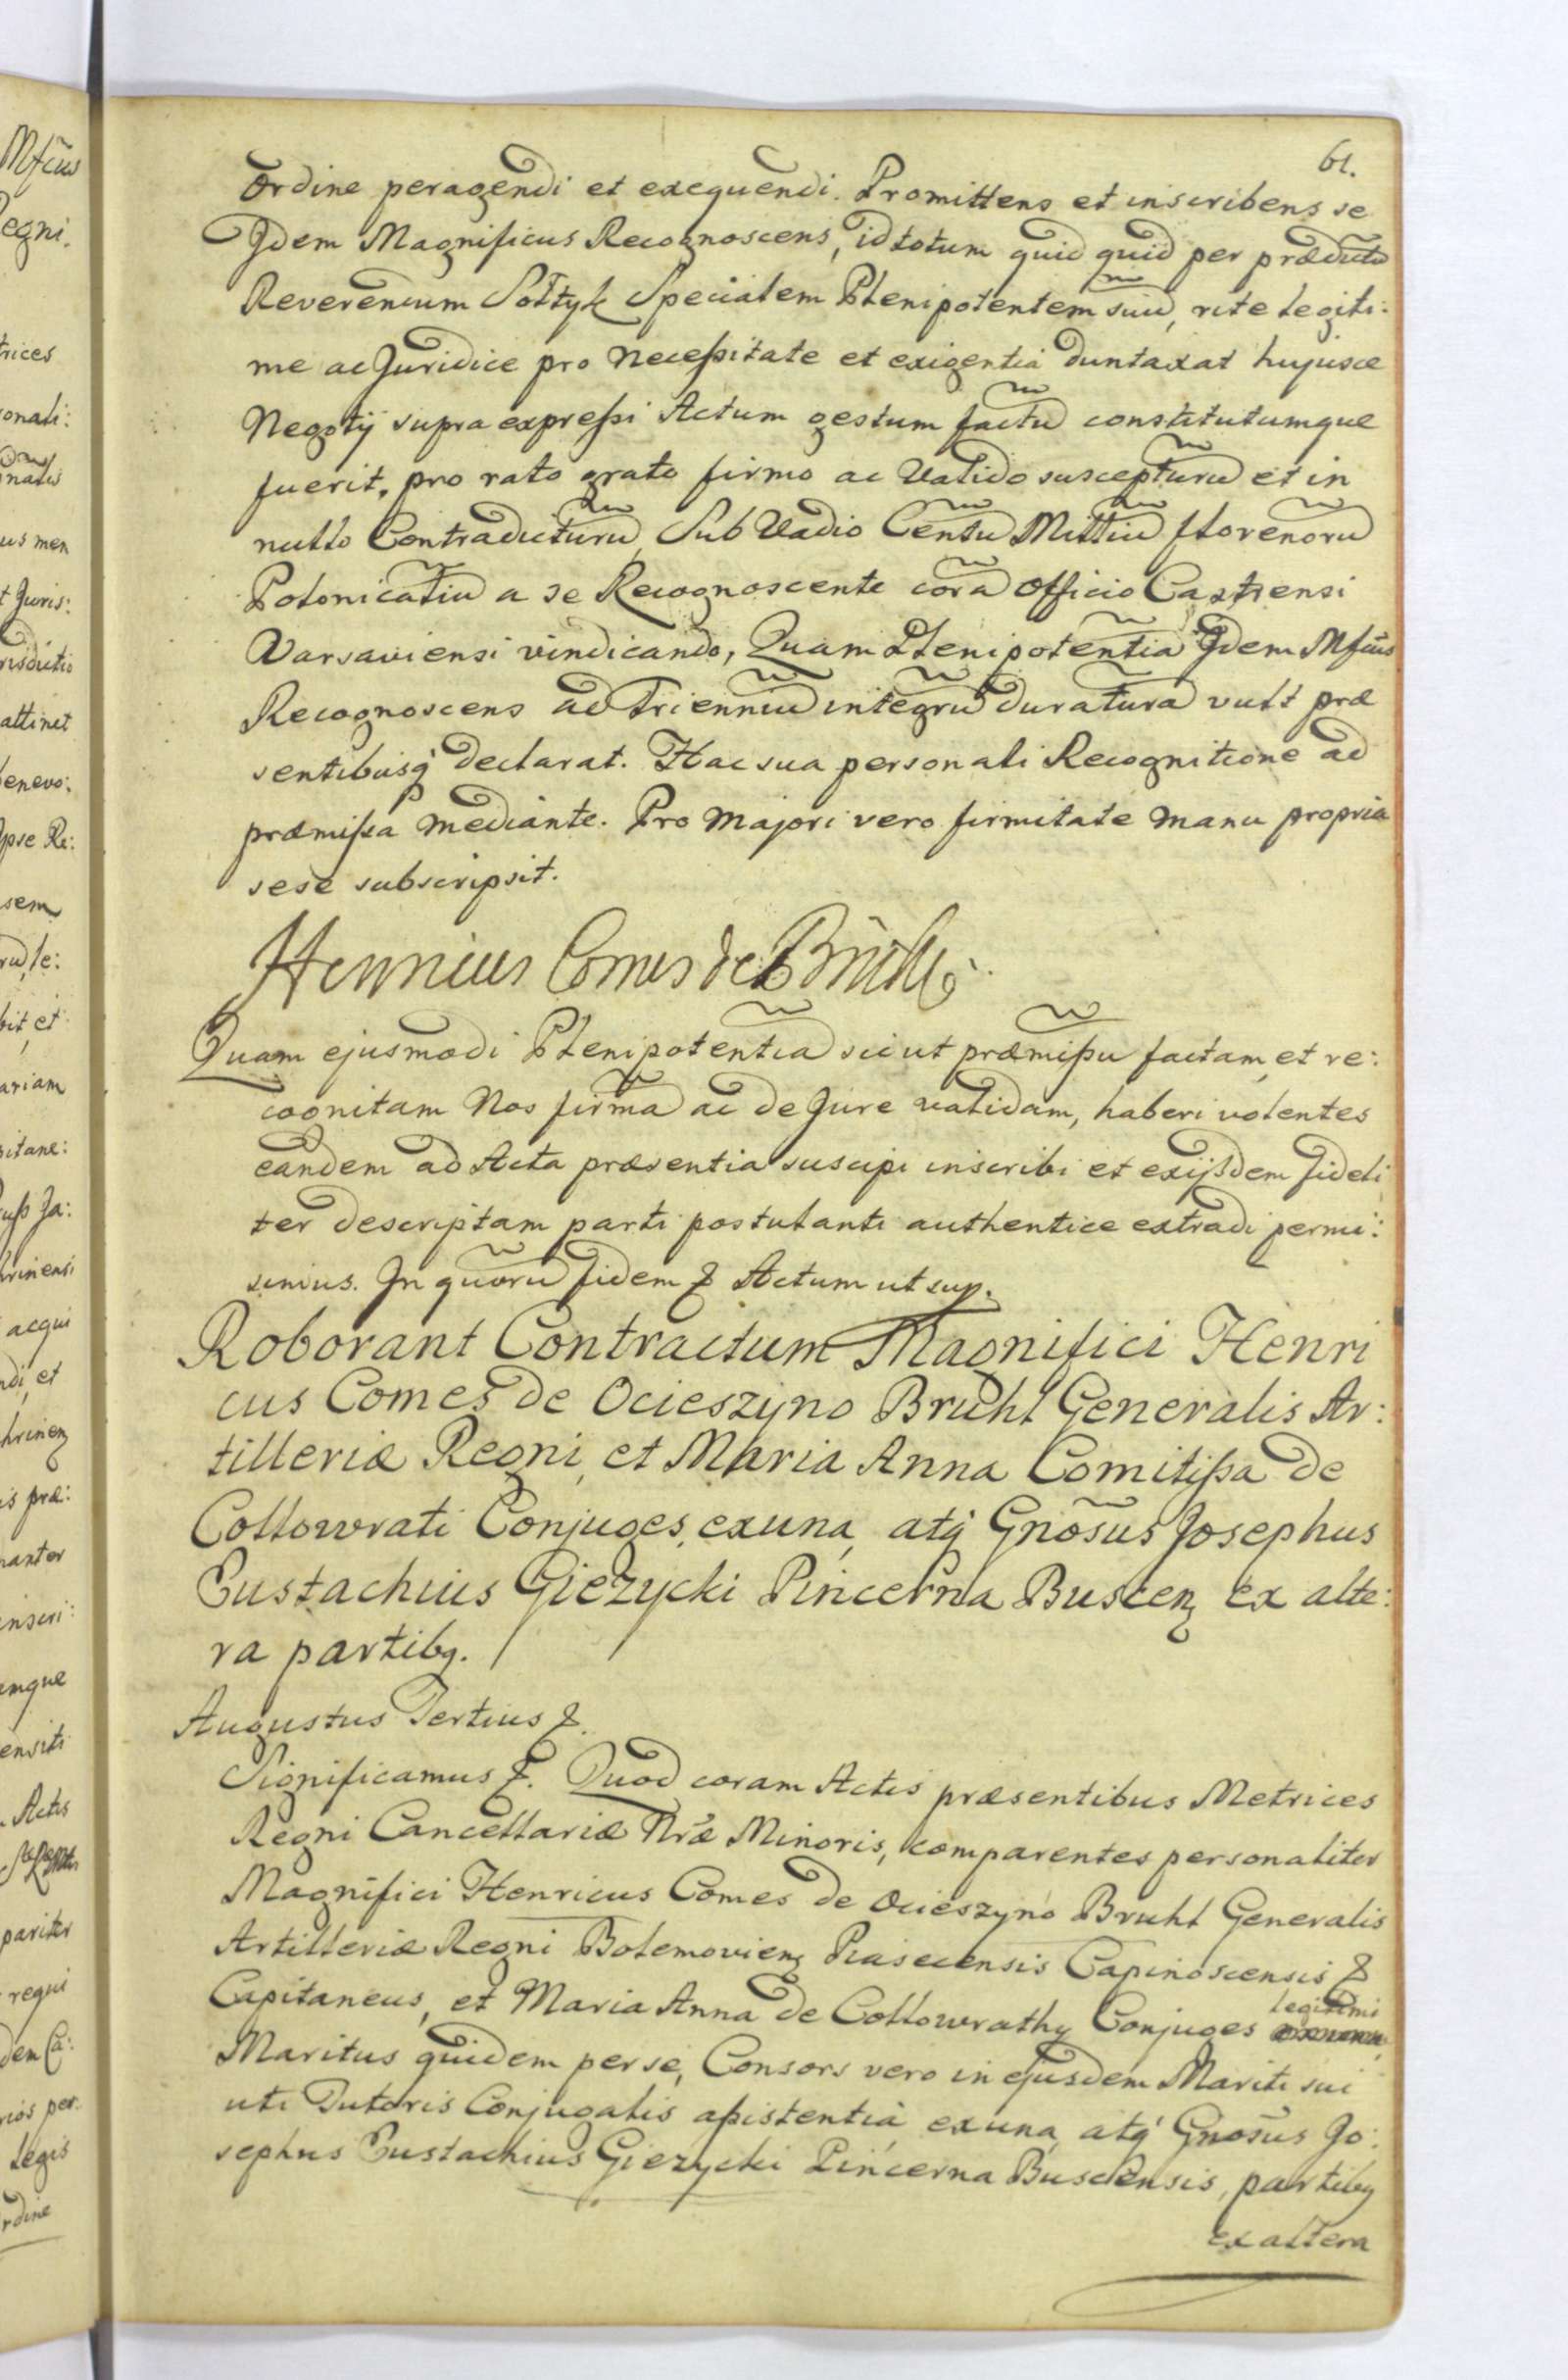 61.
ordine peragendi et exequendi. Promittens et inscribens se
Idem Magnificus Recognoscens, id totum quid quid per prædictū
Reverendum Sołtyk Specialem Plenipotentem suū, rite legiti:
me ac Juridice pro necessitate et exigentiâ duntaxat hujusce
Negotÿ supra expressi Actum gestum factū constitutumque
fuerit, pro rato grato firmo ac valido suscepturū et in
nullo Contradicturū, Sub Vadio Centū Milliū florenorū
Polonicaliū a se Recognoscente corā Officio Castrensi
Varsaviensi vindicando, Quam Plenipotentiā Idem Mfcūs
Recognoscens ad Trienniū integrū duraturā vult præ
sentibusq̃ declarat. Hac sua personali Recognitione ad
præmissa mediante. Pro majori vero firmitate manu propria
sese subscripsit.
Henricus Comes de Brühl
Quam ejusmodi Plenipotentiā sicut præmissū factam, et re:
cognitam Nos firmā ac de Jure validam, haberi volentes
eandem ad Acta præsentia suscipi inscribi et exijsdem fideli
ter descriptam parti postulanti authentice extradi permi:
simus. In quorū fidem & Actum ut sup.
Roborant Contractum Magnifici Henri
cus Comes de Ocieszyno Bruhl Generalis Ar:
tilleriæ Regni, et Maria Anna Comitissa de
Collowrati Conjuges, ex una, atq̃ Gnōsus Josephus
Eustachius Giezycki Pincerna Buscen̄ ex alte:
ra partibq.
Augustus Tertius &.
Significamus &. Quod coram Actis præsentibus Metrices
Regni Cancellariæ Nr̃æ Minoris, comparentes personaliter
Magnifici Henricus Comes de Ocieszyno Bruhl Generalis
Artilleriæ Regni Bolemovien̄ Piasecensis Capinoscensis &
Capitaneus, et Maria Anna de Collowrathy Conjuges legitimi
Maritus quidem per se, Consors vero in ejusdem Mariti sui
uti Tutoris Conjugalis assistentiâ ex una, atq̃ Gnosūs Jo:
sephus Eustachius Giezycki Pincerna Buscensis, partibq
ex altera